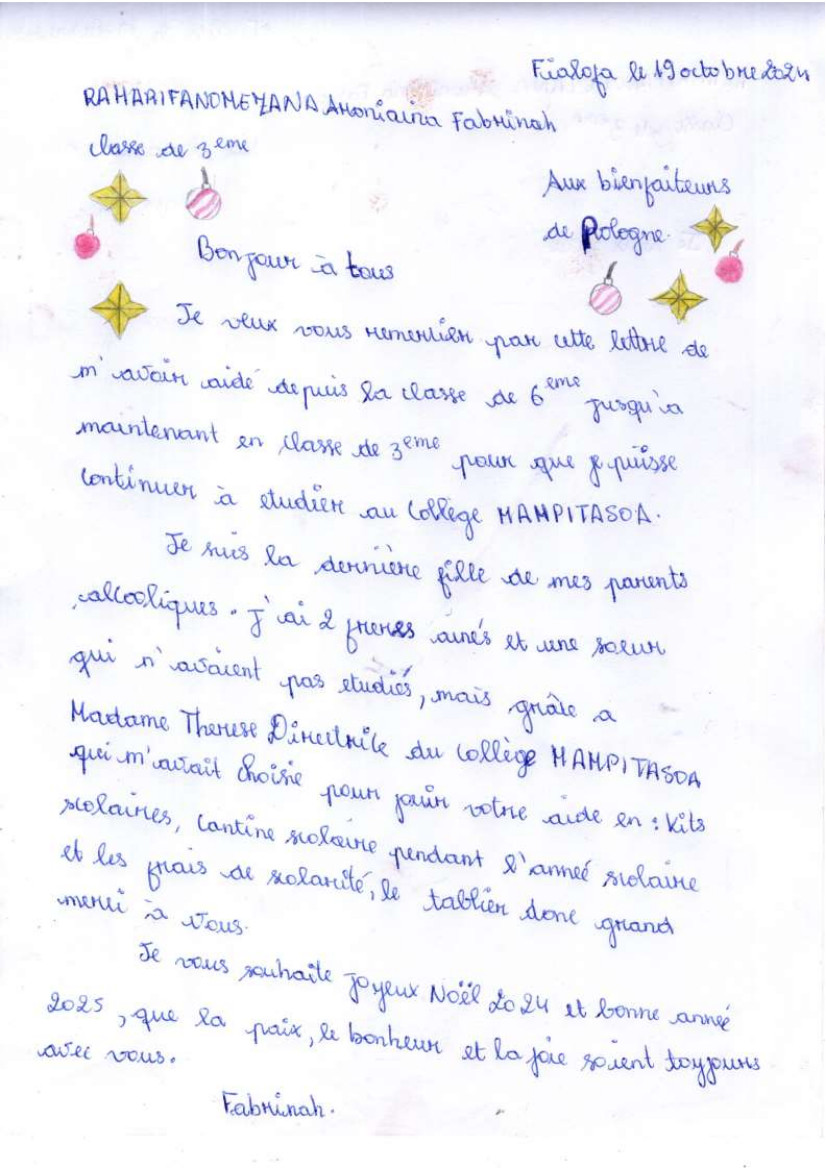 Fialofa le 19 octobre 2024
RAHARIFANOMEZANA Aroniaina Fabrinah
classe de 3eme
Aux bienfaiteurs
de Pologne.
Bonjour à tous
Je veux vous remercier par cette lettre de
m'avoir aidé depuis la classe de 6eme jusqu'a
maintenant en classe de 3eme pour que je puisse
continuer à etudier au Collège MAMPITASOA.
Je suis la dernière fille de mes parents
alcooliques. J'ai 2 freres ainés et une soeur
qui n'avaient pas etudiés, mais grâce a
Madame Therese Directrice du Collège MAMPITASOA
qui m'avait choisie pour jouir votre aide en : Kits
scolaires, Cantine scolaire pendant l'anneé scolaire
et les frais de scolarité, le tablier donc grand
merci à vous.
Je vous souhaite Joyeux Noël 2024 et bonne anneé
2025, que la paix, le bonheur et la joie soient toujours
avec vous.
Fabrinah.